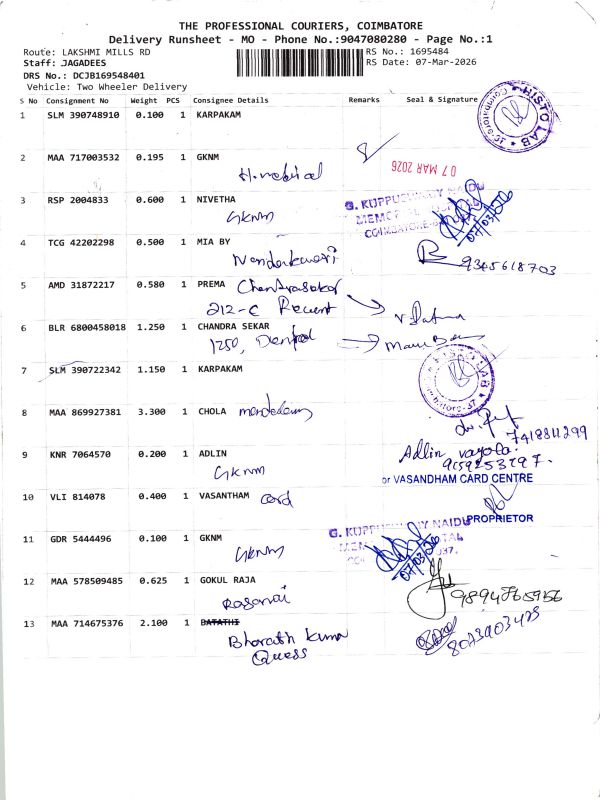 THE PROFESSIONAL COURIERS, COIMBATORE
Delivery Runsheet - MO - Phone No.:9047080280 - Page No.:1
Route: LAKSHMI MILLS RD
RS No.: 1695484
Staff: JAGADEES
RS Date: 07-Mar-2026
DRS No.: DCJB169548401
Vehicle: Two Wheeler Delivery
S No Consignment No Weight PCS Consignee Details Remarks Seal & Signature
1 SLM 390748910 0.100 1 KARPAKAM
HISTO LAB
2 MAA 717003532 0.195 1 GKNM
07 MAR 2026
3 RSP 2004833 0.600 1 NIVETHA
GKNM
G. KUPPUSWAMY NAIDU
COIMBATORE
07/03/26
4 TCG 42202298 0.500 1 MIA BY
9345618703
5 AMD 31872217 0.580 1 PREMA
212-C
6 BLR 6800458018 1.250 1 CHANDRA SEKAR
1250, Dental
7 SLM 390722342 1.150 1 KARPAKAM
LAB
8 MAA 869927381 3.300 1 CHOLA
7418811299
9 KNR 7064570 0.200 1 ADLIN
GKNM
Adlin
10 VLI 814078 0.400 1 VASANTHAM card
or VASANDHAM CARD CENTRE
PROPRIETOR
11 GDR 5444496 0.100 1 GKNM
GKNM
G. KUPPUSWAMY NAIDU
037.
12 MAA 578509485 0.625 1 GOKUL RAJA
13 MAA 714675376 2.100 1 BATATHI
Bharath Kuma
Quess